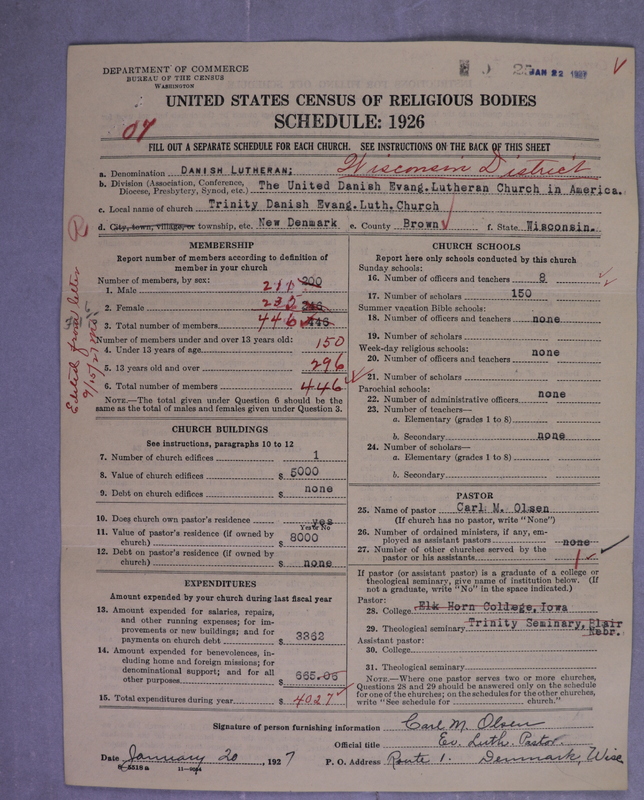 DEPARTMENT OF COMMERCE
BUREAU OF THE CENSUS
WASHINGTON
JAN 22 1927
UNITED STATES CENSUS OF RELIGIOUS BODIES
SCHEDULE: 1926
04
FILL OUT A SEPARATE SCHEDULE FOR EACH CHURCH. SEE INSTRUCTIONS ON THE BACK OF THIS SHEET
a. Denomination DANISH LUTHERAN; Wisconsin District
b. Division (Association, Conference, Diocese, Presbytery, Synod, etc.) The United Danish Evang.Lutheran Church in America.
c. Local name of church Trinity Danish Evang.Luth.Church
d. City, town, village, or township, etc. New Denmark e. County Brown f. State Wisconsin.
MEMBERSHIP
Report number of members according to definition of
member in your church
Number of members, by sex:
1. Male 211 200
2. Female 235 246
3. Total number of members 446 446
Number of members under and over 13 years old:
4. Under 13 years of age 150
5. 13 years old and over 296
6. Total number of members 446
NOTE.—The total given under Question 6 should be the
same as the total of males and females given under Question 3.
Edited from letter
9/15/27
CHURCH BUILDINGS
See instructions, paragraphs 10 to 12
7. Number of church edifices 1
8. Value of church edifices $ 5000
9. Debt on church edifices $ none
10. Does church own pastor's residence yes
Yes or No
11. Value of pastor's residence (if owned by
church) $ 8000
12. Debt on pastor's residence (if owned by
church) $ none
EXPENDITURES
Amount expended by your church during last fiscal year
13. Amount expended for salaries, repairs,
and other running expenses; for im-
provements or new buildings; and for
payments on church debt $ 3362
14. Amount expended for benevolences, in-
cluding home and foreign missions; for
denominational support; and for all
other purposes $ 665.06
15. Total expenditures during year $ 4027
CHURCH SCHOOLS
Report here only schools conducted by this church
Sunday schools:
16. Number of officers and teachers 8
17. Number of scholars 150
Summer vacation Bible schools:
18. Number of officers and teachers none
19. Number of scholars
Week-day religious schools:
20. Number of officers and teachers none
21. Number of scholars
Parochial schools:
22. Number of administrative officers none
23. Number of teachers—
a. Elementary (grades 1 to 8)
b. Secondary none
24. Number of scholars—
a. Elementary (grades 1 to 8)
b. Secondary
PASTOR
25. Name of pastor Carl M. Olsen
(If church has no pastor, write "None")
26. Number of ordained ministers, if any, em-
ployed as assistant pastors none
27. Number of other churches served by the
pastor or his assistants 1
If pastor (or assistant pastor) is a graduate of a college or
theological seminary, give name of institution below. (If
not a graduate, write "No" in the space indicated.)
Pastor:
28. College Elk Horn College, Iowa
29. Theological seminary Trinity Seminary, Blair
Nebr.
Assistant pastor:
30. College
31. Theological seminary
NOTE.—Where one pastor serves two or more churches,
Questions 28 and 29 should be answered only on the schedule
for one of the churches; on the schedules for the other churches,
write "See schedule for church."
Signature of person furnishing information Carl M. Olsen
Official title Ev. Luth. Pastor.
Date January 20, 1927 P. O. Address Route 1. Denmark, Wisc
8-5518 a 11-9064